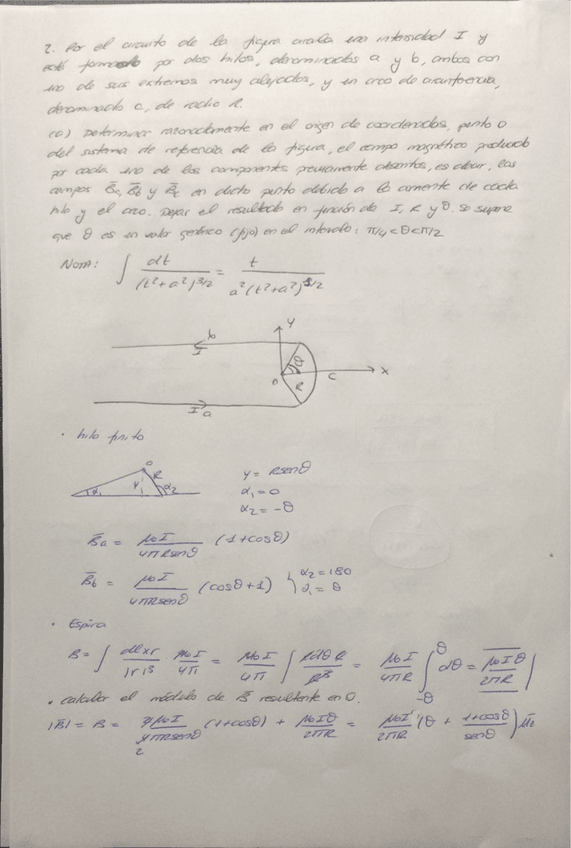 2. Por el circuito de la figura circula una intensidad I y
está formado por dos hilos, denominados a y b, ambos con
uno de sus extremos muy alejados, y un arco de circunferencia,
denominado c, de radio R.
(a) Determinar razonadamente en el origen de coordenadas, punto O
del sistema de referencia de la figura, el campo magnético producido
por cada uno de los componentes previamente descritos, es decir, los
campos B̄a, B̄b y B̄c en dicho punto debido a la corriente de cada
hilo y el arco. Dejar el resultado en función de I, R y θ. Se supone
que θ es un valor genérico (fijo) en el intervalo: π/4 < θ < π/2
NOTA: ∫ dt/(t²+a²)^3/2 = t/a²(t²+a²)^1/2
Y
b
I
θ
O
R
C
X
I a
• hilo finito
O
R
α1 y α2
y = Rsenθ
α1 = 0
α2 = -θ
B̄a = μ0I/4πRsenθ (1+cosθ)
B̄b = μ0I/4πRsenθ (cosθ+1) } α2 = 180
α1 = θ
• Espira
B = ∫ dl×r/|r|³ μ0I/4π = μ0I/4π ∫ RdθR/R³ = μ0I/4πR ∫-θ^θ dθ = μ0Iθ/2πR
• calcular el módulo de B̄ resultante en O.
|B̄| = B = 2μ0I/4πRsenθ (1+cosθ) + μ0Iθ/2πR = μ0I/2πR (θ + 1+cosθ/senθ) μ̄z
2